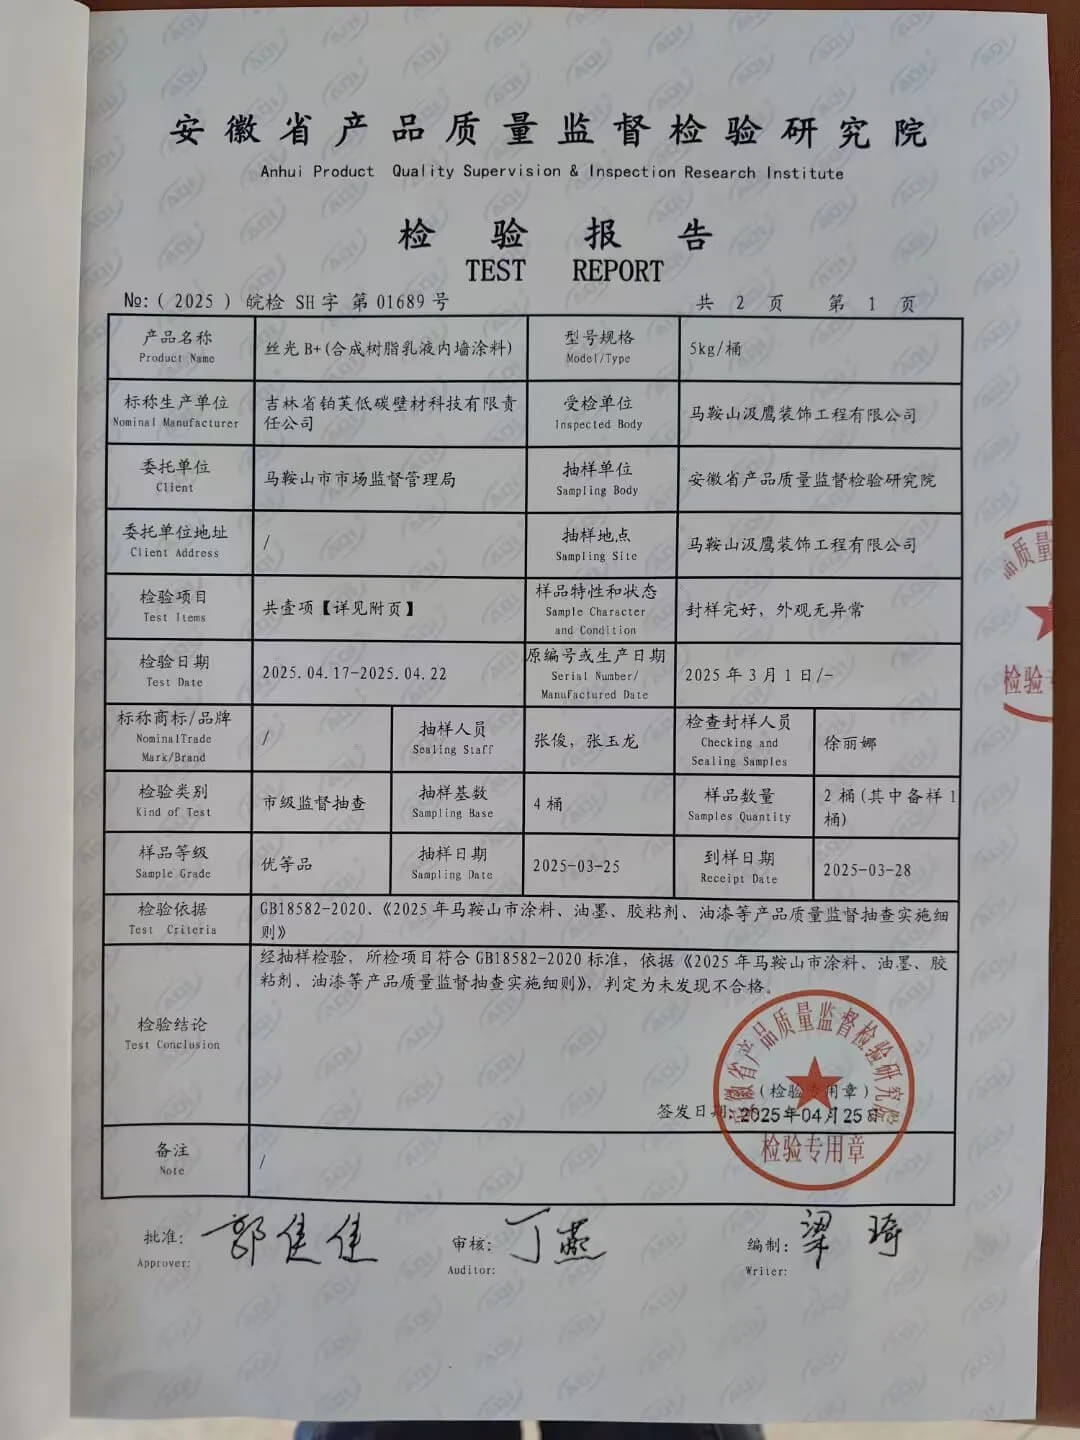 安徽省产品质量监督检验研究院
Anhui Product Quality Supervision & Inspection Research Institute
检验报告
TEST REPORT
№:(2025)皖检 SH字 第01689号
共 2 页 第 1 页
产品名称
Product Name
丝光B+(合成树脂乳液内墙涂料)
型号规格
Model/Type
5kg/桶
标称生产单位
Nominal Manufacturer
吉林省铂芙低碳壁材科技有限责
任公司
受检单位
Inspected Body
马鞍山汲鹰装饰工程有限公司
委托单位
Client
马鞍山市市场监督管理局
抽样单位
Sampling Body
安徽省产品质量监督检验研究院
委托单位地址
Client Address
/
抽样地点
Sampling Site
马鞍山汲鹰装饰工程有限公司
检验项目
Test Items
共壹项【详见附页】
样品特性和状态
Sample Character
and Condition
封样完好，外观无异常
检验日期
Test Date
2025.04.17-2025.04.22
原编号或生产日期
Serial Number/
Manufactured Date
2025年3月1日/-
标称商标/品牌
NominalTrade
Mark/Brand
/
抽样人员
Sealing Staff
张俊，张玉龙
检查封样人员
Checking and
Sealing Samples
徐丽娜
检验类别
Kind of Test
市级监督抽查
抽样基数
Sampling Base
4桶
样品数量
Samples Quantity
2桶(其中备样1
桶)
样品等级
Sample Grade
优等品
抽样日期
Sampling Date
2025-03-25
到样日期
Receipt Date
2025-03-28
检验依据
Test Criteria
GB18582-2020、《2025年马鞍山市涂料、油墨、胶粘剂、油漆等产品质量监督抽查实施细
则》
检验结论
Test Conclusion
经抽样检验，所检项目符合GB18582-2020标准，依据《2025年马鞍山市涂料、油墨、胶
粘剂、油漆等产品质量监督抽查实施细则》，判定为未发现不合格。
(检验专用章)
签发日期:2025年04月25日
安徽省产品质量监督检验研究院
检验专用章
备注
Note
/
批准:
Approver:
郭佳佳
审核:
Auditor:
丁燕
编制:
Writer:
梁琦
品质量
检验
AQI